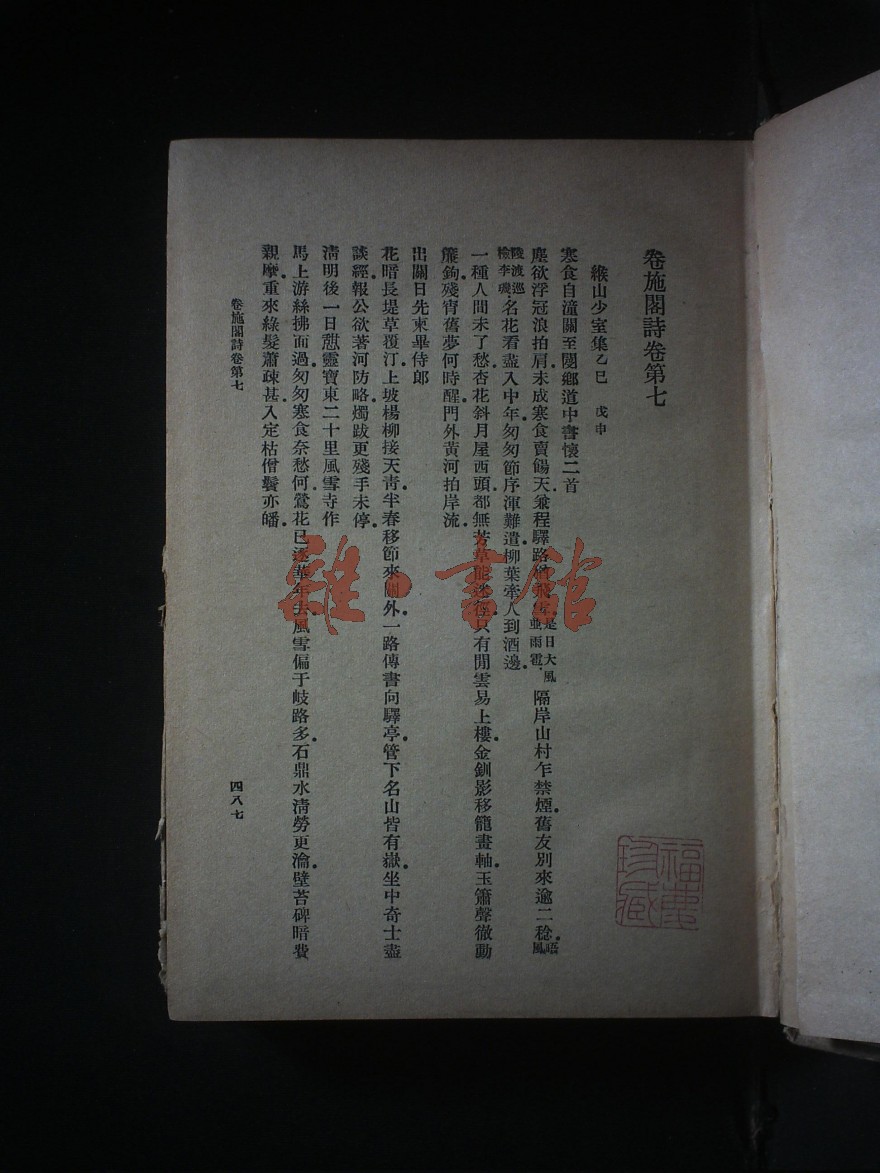 卷施閣詩卷第七
緱山少室集乙巳 戊申
寒食自潼關至閿鄉道中書懷二首
塵欲浮冠浪拍肩未成寒食賣餳天兼程驛路是日大風並雨雹隔岸山村乍禁煙舊友別來逾二稔晤風
陵渡巡檢李磯名花看盡入中年匆匆節序渾難遣柳葉牽人到酒邊
一種人間未了愁杏花斜月屋西頭都無芳草能迷徑只有閒雲易上樓金釧影移籠畫軸玉簫聲徹動
簾鉤殘宵舊夢何時醒門外黃河拍岸流
出關日先柬畢侍郎
花暗長堤草覆汀上坡楊柳接天靑半春移節來關外一路傳書向驛亭管下名山皆有嶽坐中奇士盡
談經報公欲著河防略燭跋更殘手未停
淸明後一日憇靈寶東二十里風雪寺作
馬上游絲拂面過匆匆寒食奈愁何鶯花已逐華年去風雪偏于岐路多石鼎水淸勞更瀹壁苔碑暗費
親摩重來綠髮蕭疎甚入定枯僧鬢亦皤
卷施閣詩卷第七
四八七
雜·書館
珍藏